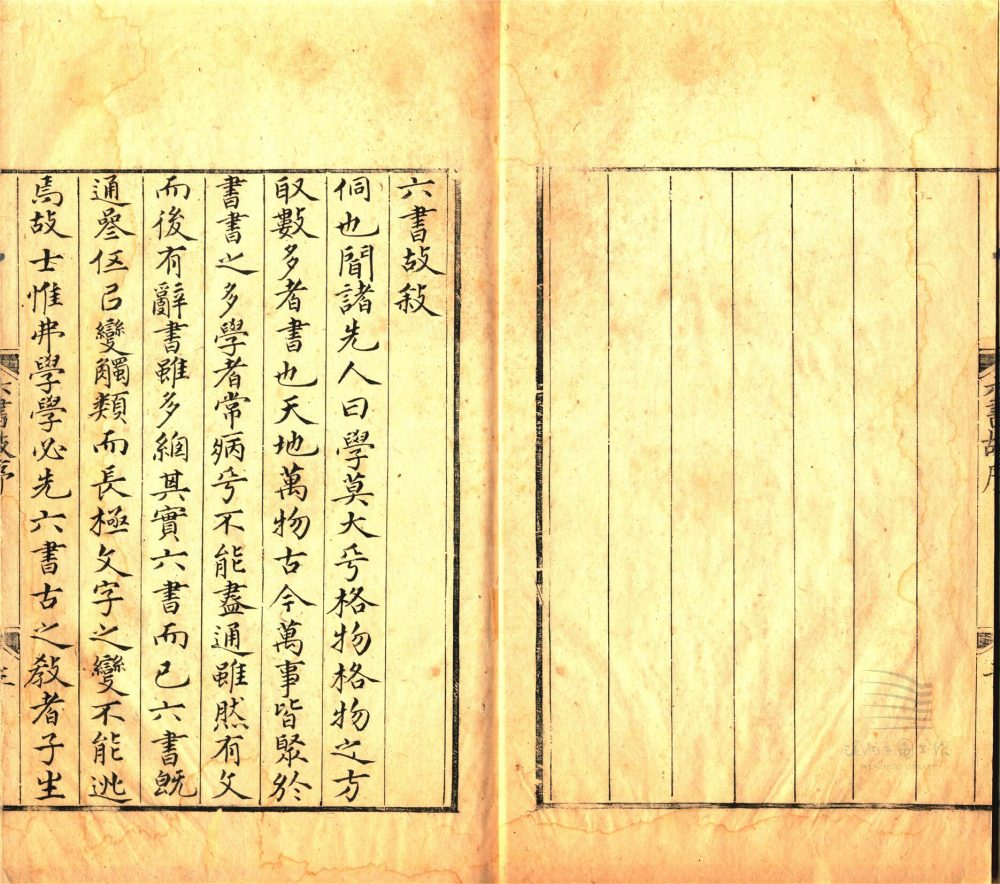 六書故序
WENZHOU LIBRARY
六書故敍
侗也聞諸先人曰學莫大乎格物格物之方
取數多者書也天地萬物古今萬事皆聚於
書書之多學者常病乎不能盡通雖然有文
而後有辭書雖多總其實六書而已六書既
通參伍㠯變觸類而長極文字之變不能逃
焉故士惟弗學學必先六書古之教者子生
六書故序